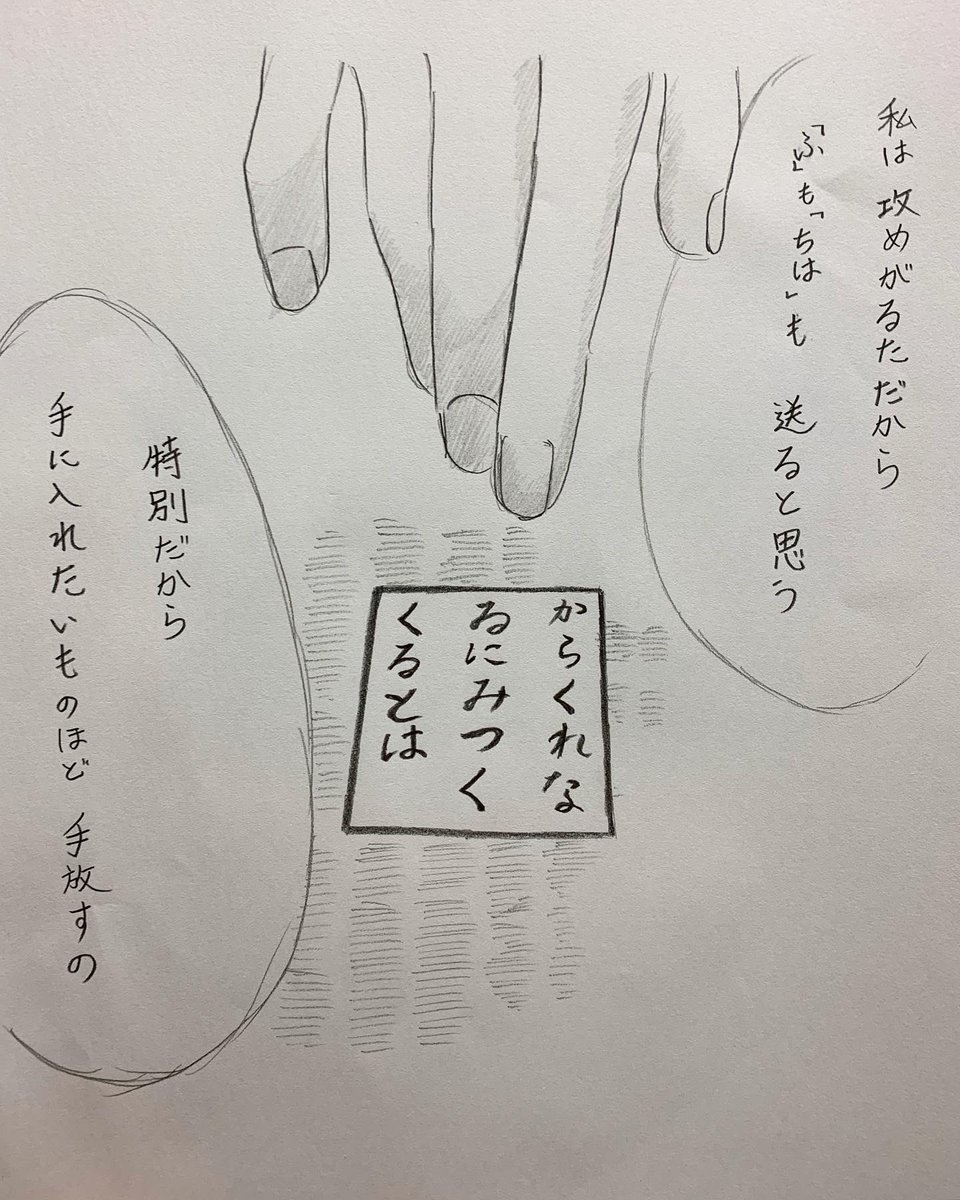 私は攻めがるただから
「ふ」も「ちは」も 送ると思う
からくれな
ゐにみつく
くるとは
特別だから
手に入れたいものほど 手放すの